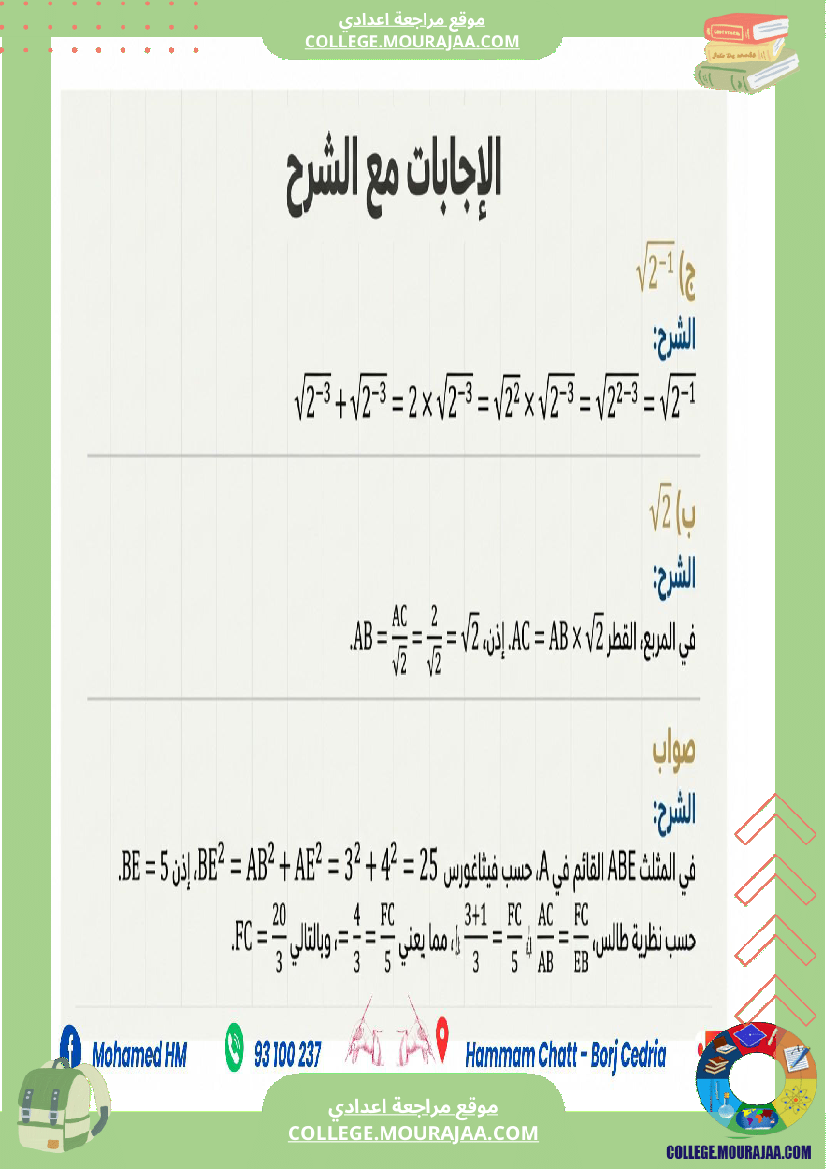 موقع مراجعة اعدادي
COLLEGE.MOURAJAA.COM
الإجابات مع الشرح
ج) √2⁻¹
الشرح:
√2⁻³ + √2⁻³ = 2 × √2⁻³ = √2² × √2⁻³ = √2²⁻³ = √2⁻¹
ب) √2
الشرح:
في المربع، القطر AC = AB × √2. إذن، AB = AC/√2 = 2/√2 = √2.
صواب
الشرح:
في المثلث ABE القائم في A، حسب فيثاغورس BE² = AB² + AE² = 3² + 4² = 25، إذن BE = 5.
حسب نظرية طالس، FC/EB = AC/AB، FC/5 = 3+1/3، مما يعني FC/5 = 4/3 =، وبالتالي FC = 20/3.
Mohamed HM 93 100 237 Hammam Chatt - Borj Cedria
موقع مراجعة اعدادي
COLLEGE.MOURAJAA.COM
COLLEGE.MOURAJAA.COM